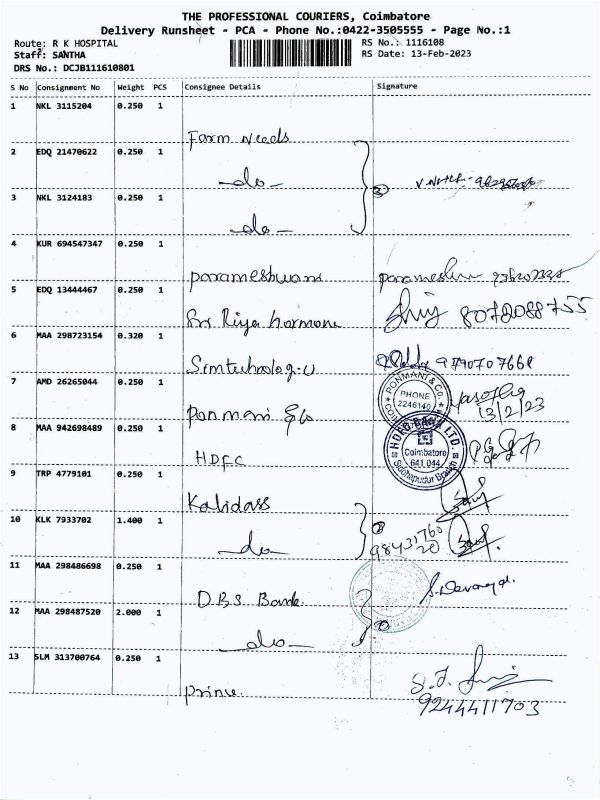 THE PROFESSIONAL COURIERS, Coimbatore
Delivery Runsheet - PCA - Phone No.:0422-3505555 - Page No.:1
Route: R K HOSPITAL
Staff: SANTHA
DRS No.: DCJB111610801
RS No.: 1116108
RS Date: 13-Feb-2023
S No Consignment No Weight PCS Consignee Details Signature
1 NKL 3115204 0.250 1
Farm Needs
2 EDQ 21470622 0.250 1
-do-
3 NKL 3124183 0.250 1
-do-
4 KUR 694547347 0.250 1
Parameshwari
5 EDQ 13444467 0.250 1
Sri Riya hormone 8072088755
6 MAA 298723154 0.320 1
9790707668
7 AMD 26265044 0.250 1
Ponmani & Co
PONMANI & CO.
PHONE
2246140
13/2/23
8 MAA 942698489 0.250 1
HDFC
HDFC BANK LTD.
Coimbatore
641 044
Branch
9 TRP 4779101 0.250 1
Kalidass
10 KLK 7933702 1.400 1
-do- 98431760
20
11 MAA 298486698 0.250 1
DBS Bank
12 MAA 298487520 2.000 1
-do-
13 SLM 313700764 0.250 1
Prince
9244411703